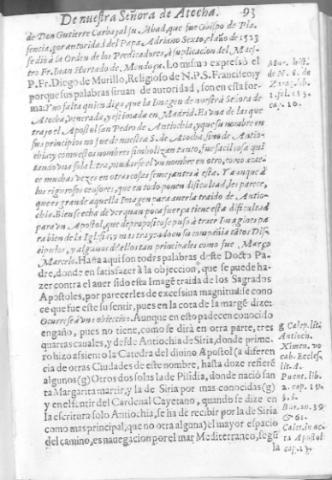 De nuestra Señora de Atocha. 93
de Don Gutierre Carbajal su Abad, que fue Obispo de Pla-
sencia, por autoridad del Papa Adriano Sexto, el año de 1523
se dió à la Orden de los Predicadores, à suplicacion del Maes-
tro Fr. Iuan Hurtado de Mendoza. Lo mismo expresò el
P. Fr. Diego de Murillo, Religioso de N.P.S. Francisco; y
porque sus palabras sirvan de autoridad, son en esta for-
ma: No falta quien diga, que la Imagen de nuestra Señora de
Atocha, venerada, y estimada en Madrid. Es una de las que
traxo el Apostol san Pedro de Antiochia, y que su nombre en
sus principios era nuestra S. de Atocha, sino de Antio-
chia; y como estos nombres simbolizan tanto, fue facil
tando una sola letra, mudarse el un nombre en otro, como acae-
muchas vezes en otras cosas semejantes à esta. Y aunque à
los rigorosos censores, que en todo ponen dificultad, les parece,
que es grande aquella Imagen para averla traido de Antio-
chia. Bien se echa de ver quan poca fuerça tiene esta dificultad
para un Apostol, que de proposito se puso à traer Imagines pa-
ra bien de la Iglesia, y mas trayendo en su compañia tãtos Dis-
cipulos, y algunos dellos tan principales como fue Marco
Marcelo. Hasta aqui son todas palabras deste Docto Pa-
dre, donde en satisfacer à la objeccion, que se puede ha-
zer contra el aver sido esta Imagẽ traida de los Sagrados
Apostoles, por parecerles de excessiva magnitud, se cono
ce que fue este su sentir, pues en la cota de la margẽ dize:
Aunque en esto padecen conocido
engaño, pues no tiene, como se dirà en otra parte, tres
quartas cavales, y desde Antiochia de Siria, donde prime-
ro hizo assiento la Catedra del divino Apostol (à diferen
cia de otras Ciudades de este nombre, hasta doze refierẽ
algunos (g) Otros dos solas la de Pisidia, donde naciò san
ta Margarita martir, y la de Siria por mas conocidas (g)
y en el sentir del Cardenal Cayetano, quando se dize en
la escritura solo Antiochia, se ha de recibir por la de Siria
como mas principal, que no otra alguna) el mayor espacio
del camino, es navegacion por el mar Mediterraneo, segũ
la
Mur. hist.
de N. S. de
Zarag. lib.
1. fol. 133.
cap. 10.
g Calep. litẽ
Antioch.
Ximen. vo
cab. Eccles.
lit. A.
Puent. lib.
2. cap. 19.
§. 2.
Bar. an. 39
& 61.
Caiet. in ac
ta Apostol
cap. 13.